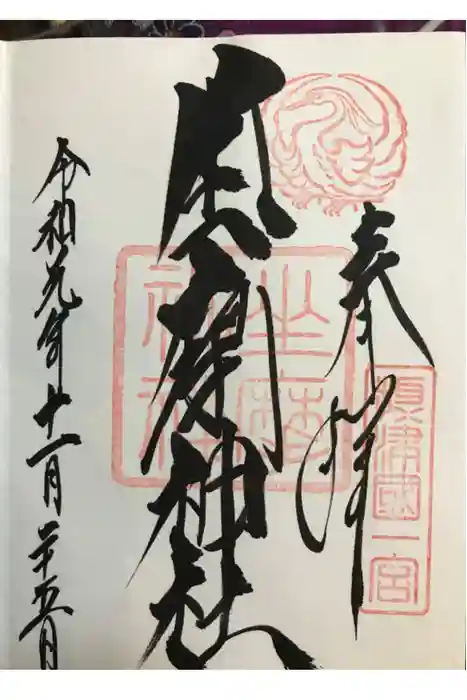 奉拝
攝津國一宮
坐摩
神社
神社
令和元年十一月二十五日